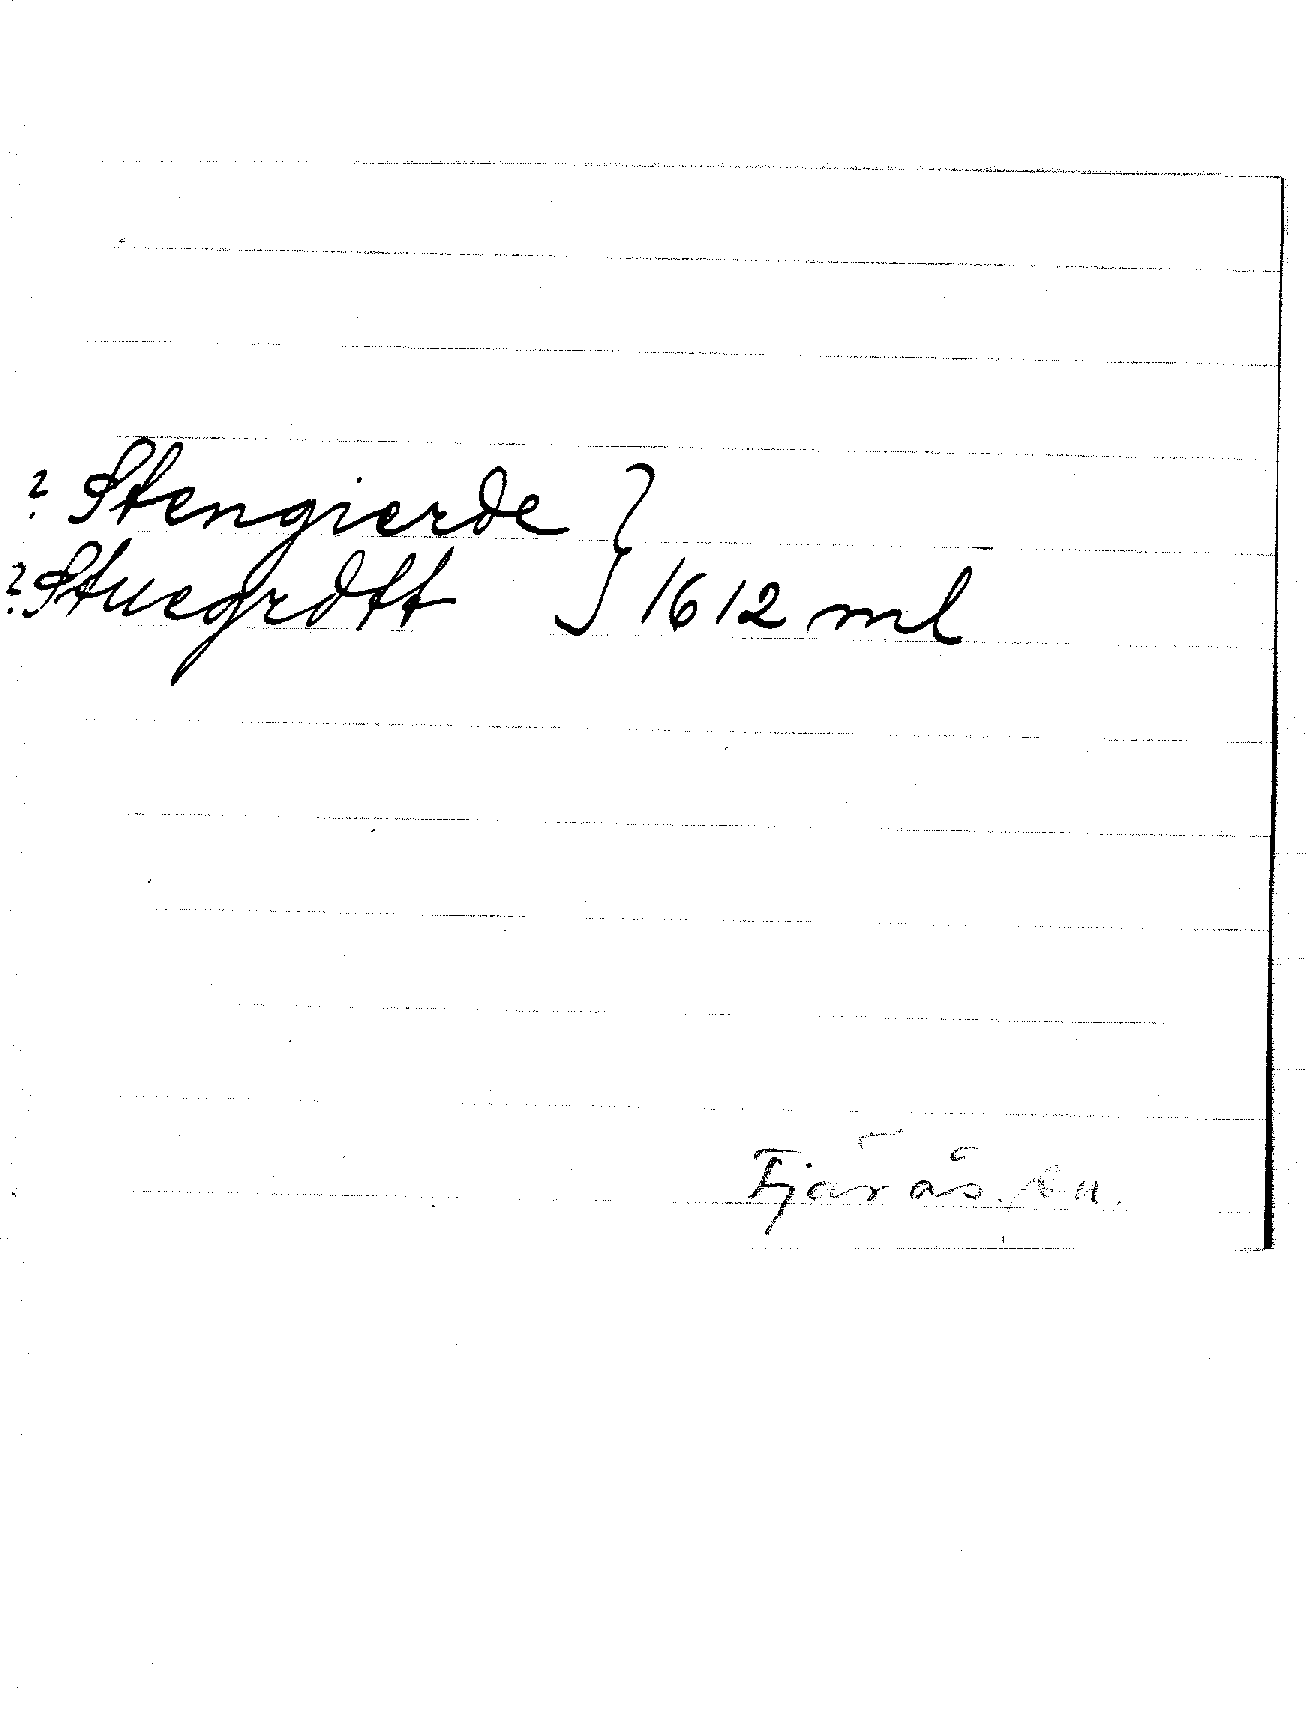 ? Stengierde
? Stuegrdtt } 1612 ml
Fjärås sn.